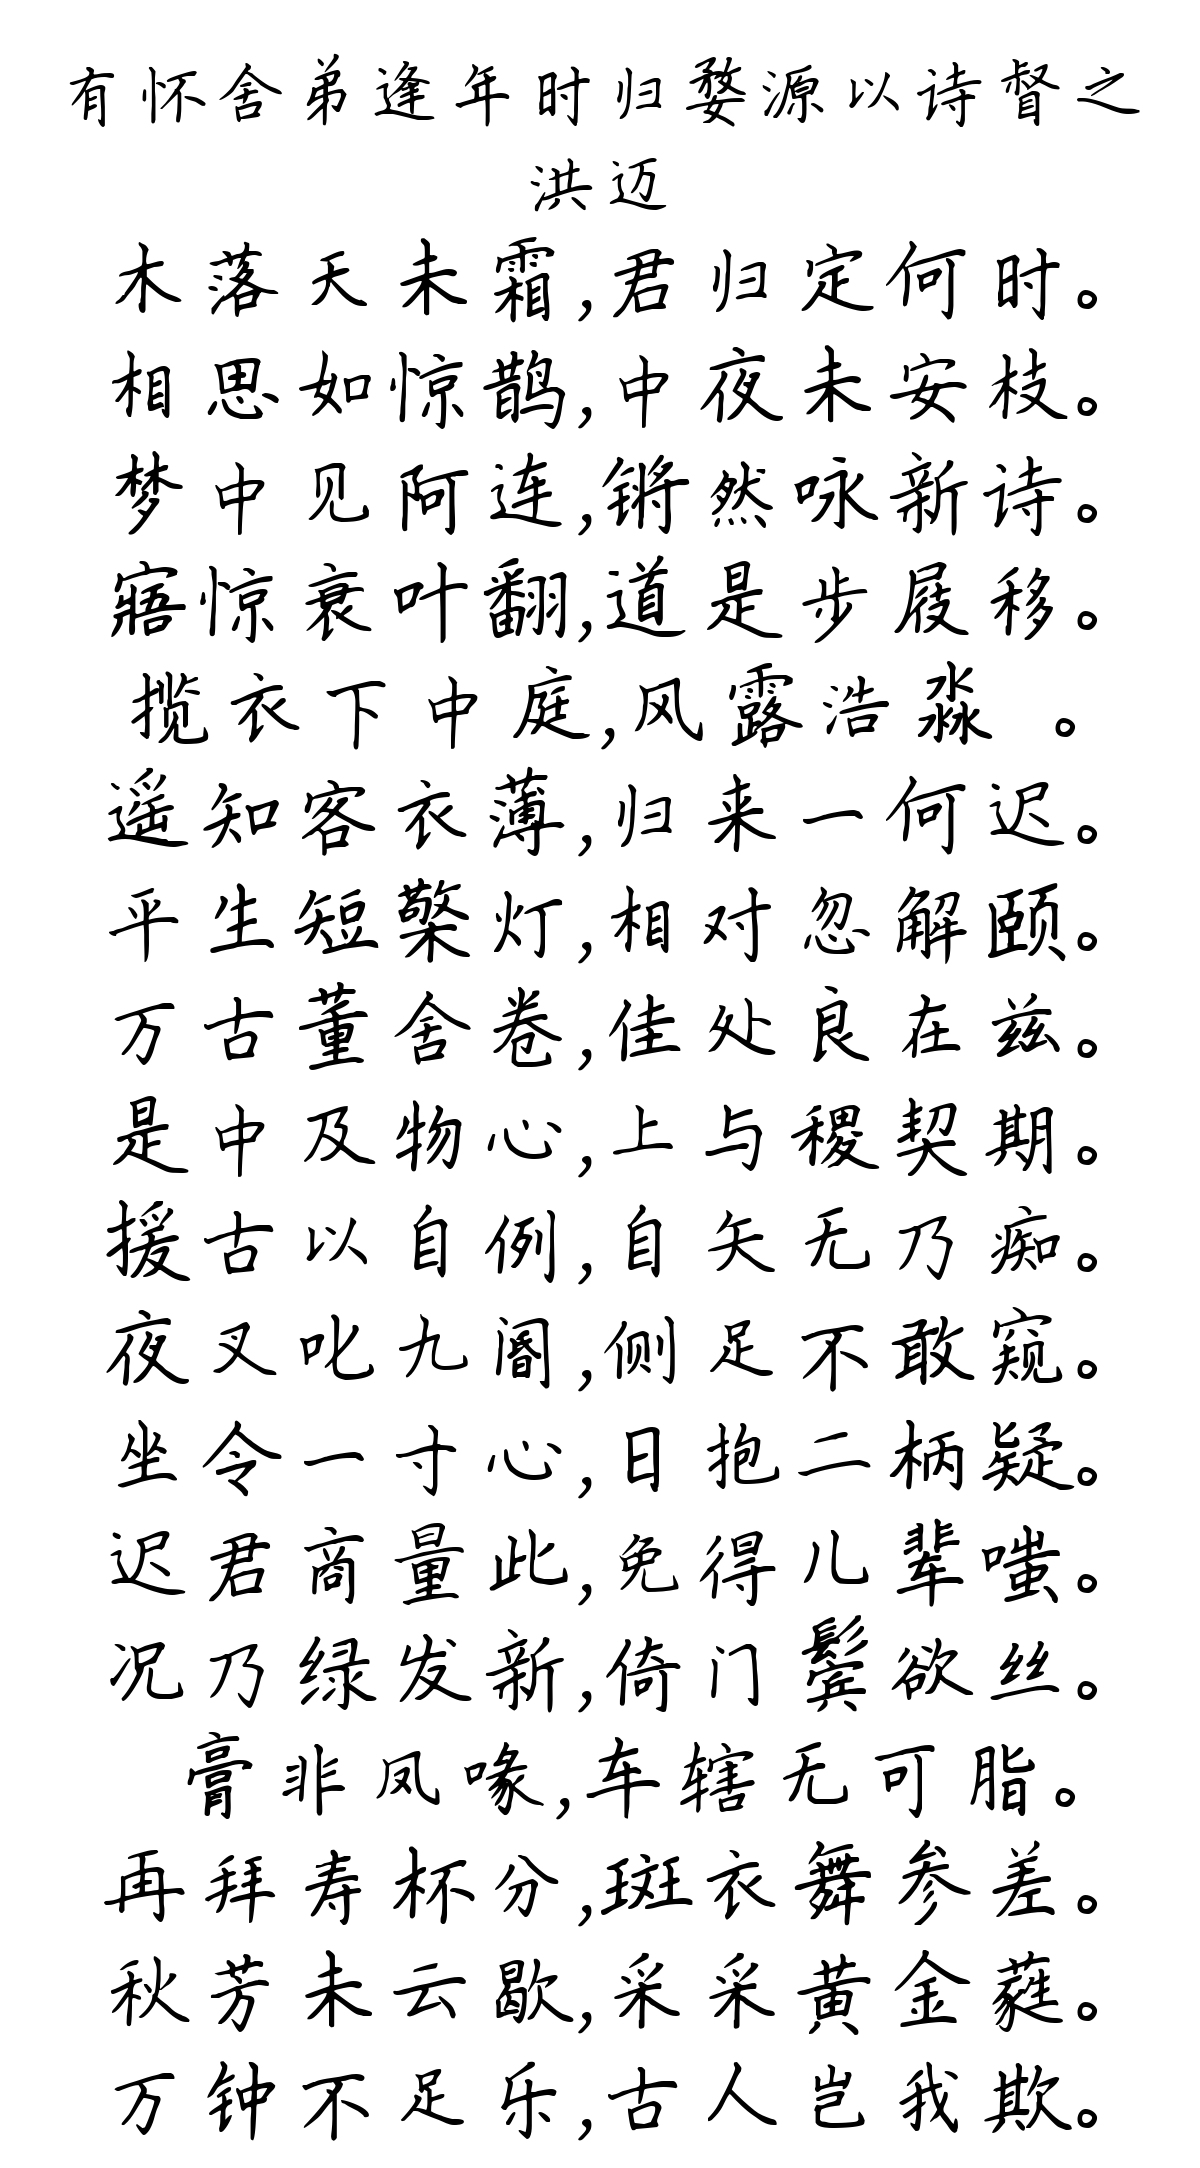 有怀舍弟逢年时归婺源以诗督之
洪迈
木落天未霜,君归定何时。
相思如惊鹊,中夜未安枝。
梦中见阿连,锵然咏新诗。
寤惊衰叶翻,道是步屐移。
揽衣下中庭,风露浩淼 。
遥知客衣薄,归来一何迟。
平生短檠灯,相对忽解颐。
万古董舍卷,佳处良在兹。
是中及物心,上与稷契期。
援古以自例,自矢无乃痴。
夜叉叱九阍,侧足不敢窥。
坐令一寸心,日抱二柄疑。
迟君商量此,免得儿辈嗤。
况乃绿发新,倚门鬓欲丝。
膏非凤喙,车辖无可脂。
再拜寿杯分,斑衣舞参差。
秋芳未云歇,采采黄金蕤。
万钟不足乐,古人岂我欺。